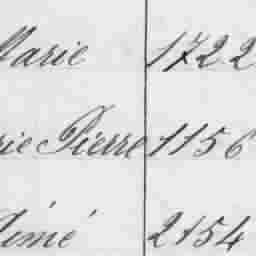 Marie 1722
rie Pierre 1156
Aimé 2154